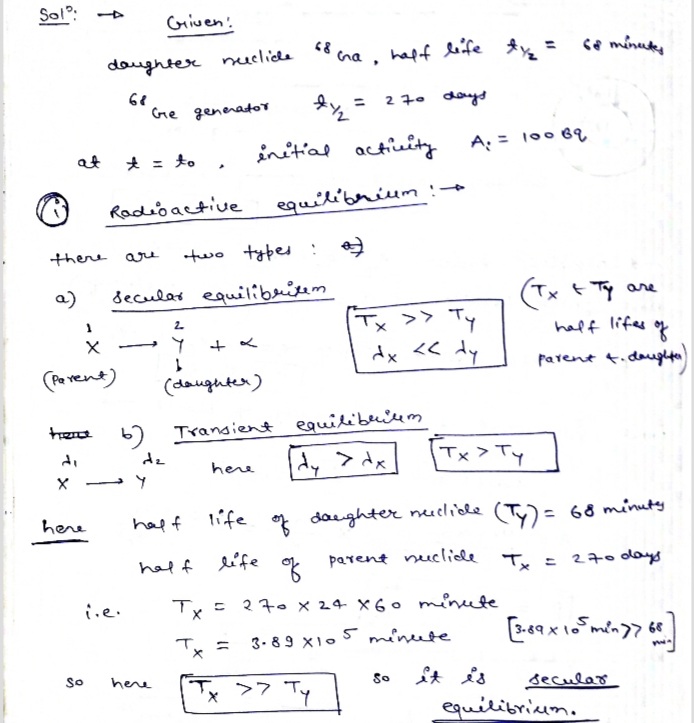 Solⁿ: → Given:
daughter nuclide ⁶⁸Ga, half life t₁/₂ = 68 minutes
⁶⁸Ge generator t₁/₂ = 270 days
at t = t₀, initial activity Aᵢ = 100 Bq
(i) Radioactive equilibrium: →
there are two types:
a) secular equilibrium
1 2
X → Y + α
(Parent) (daughter)
Tx >> Ty
λx << λy
(Tx & Ty are
half lifes of
parent & daughter)
b) Transient equilibrium
λ₁ λ₂
X → Y
here λy > λx Tx > Ty
here half life of daughter nuclide (Ty) = 68 minutes
half life of parent nuclide Tx = 270 days
i.e. Tx = 270 x 24 x 60 minute
Tx = 3.89 x 10⁵ minute [3.89 x 10⁵ min >> 68 min]
so here Tx >> Ty so it is secular
equilibrium.